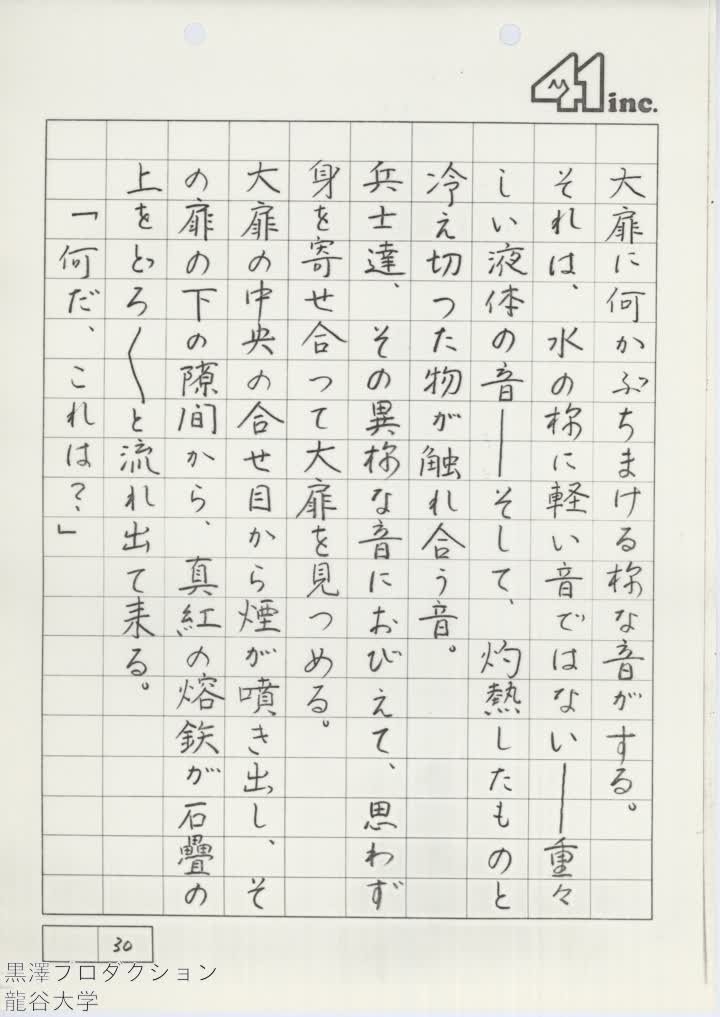 41 inc.
大扉に何かぶちまける様な音がする。
それは、水の様に軽い音ではない――重々
しい液体の音――そして、灼熱したものと
冷え切つた物が触れ合う音。
兵士達、その異様な音におびえて、思わず
身を寄せ合つて大扉を見つめる。
大扉の中央の合せ目から煙が噴き出し、そ
の扉の下の隙間から、真紅の熔鉄が石疊の
上をどろ〳〵と流れ出て来る。
「何だ、これは?」
30
黒澤プロダクション
龍谷大学